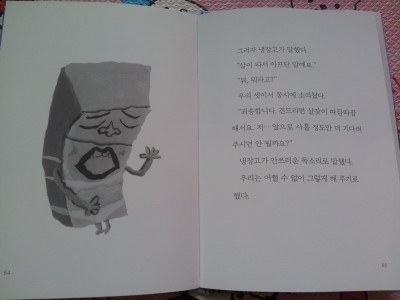 그러자 냉장고가 말했다.
"살이 다시 아프단 말예요."
"뭐, 뭐라고?"
우리 셋이서 동시에 소리쳤다.
"죄송합니다. 건드리면 살살이 따끔따끔
해서요. 저— 앞으로 사흘 정도만 더 기다려
주시면 안 될까요?"
냉장고가 안쓰러운 목소리로 말했다.
우리는 어쩔 수 없이 그렇게 해 주기로
했다.